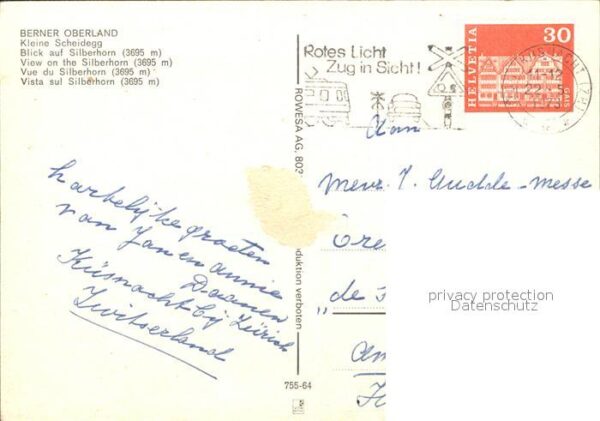 BERNER OBERLAND
Kleine Scheidegg
Blick auf Silberhorn (3695 m)
View on the Silberhorn (3695 m)
Vue du Silberhorn (3695 m)
Vista sul Silberhorn (3695 m)
Rotes Licht
Zug in Sicht!
HELVETIA
30
GAIS
11-12
22 5
ROWESA AG, 803
oduktion verboten
755-64
Aan
"de
hartelijke groeten
van Jan en annie
Daamen
Küsnacht bij Zürich
Zwitserland
privacy protection
Datenschutz